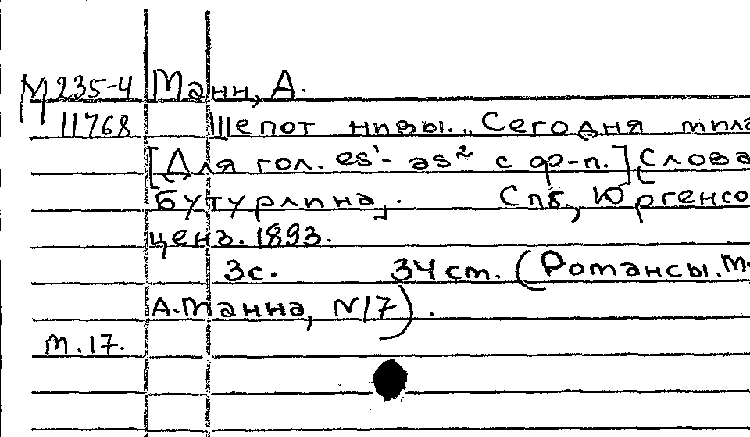 М 235-4 Манн, А.
11768 Шепот нивы. „Сегодня мила
[Для гол. es¹- as² с ф-п.] [Слова
Бутурлина]. Спб, Юргенсо
ценз. 1893.
3с. 34 cm. (Романсы. М.
А. Манна, N17).
М.17.